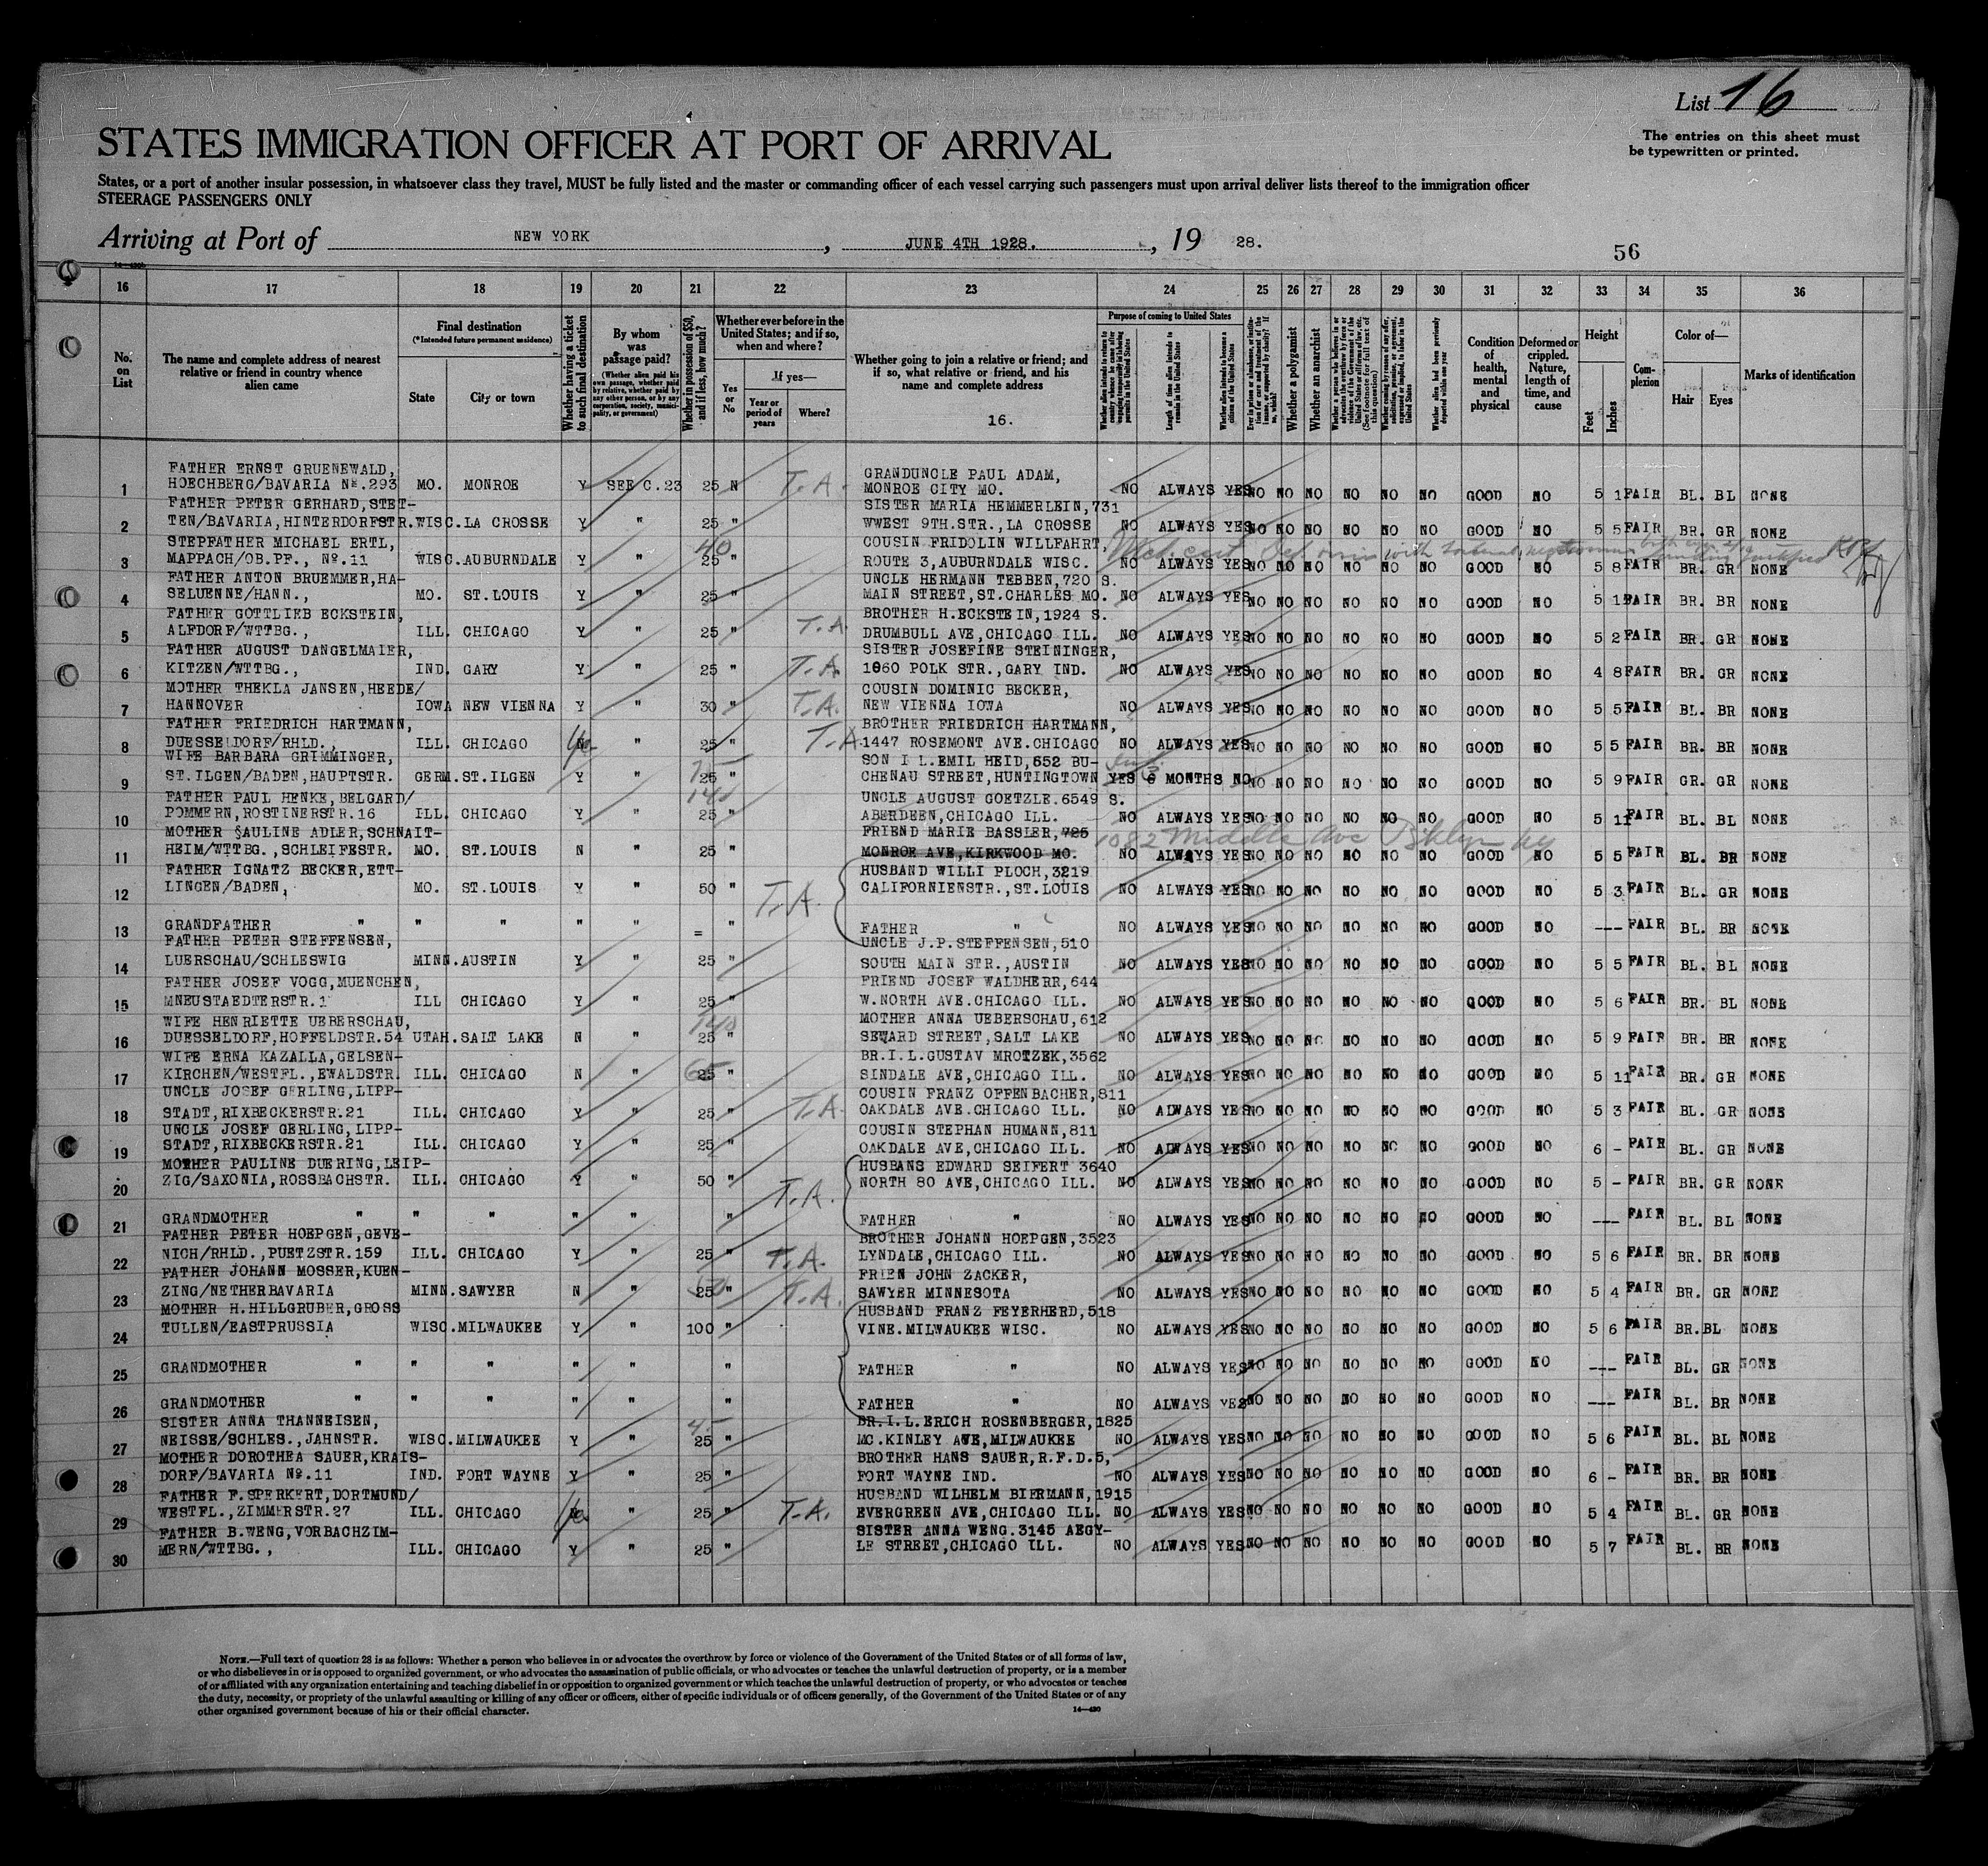 List 16
STATES IMMIGRATION OFFICER AT PORT OF ARRIVAL
The entries on this sheet must
be typewritten or printed.
States, or a port of another insular possession, in whatsoever class they travel, MUST be fully listed and the master or commanding officer of each vessel carrying such passengers must upon arrival deliver lists thereof to the immigration officer
STEERAGE PASSENGERS ONLY
Arriving at Port of NEW YORK , JUNE 4TH 1928. , 19 28.
56
16 17 18 19 20 21 22 23 24 25 26 27 28 29 30 31 32 33 34 35 36
No. on List
The name and complete address of nearest relative or friend in country whence alien came
Final destination
(*Intended future permanent residence)
State City or town
Whether having a ticket to such final destination
By whom was passage paid?
(Whether alien paid his own passage, whether paid by relative, whether paid by any other person, or by any corporation, society, municipality, or government)
Whether in possession of $50, and if less, how much?
Whether ever before in the United States; and if so, when and where?
Yes or No
If yes—
Year or period of years Where?
Whether going to join a relative or friend; and if so, what relative or friend, and his name and complete address
16.
Purpose of coming to United States
Length of time alien intends to remain in the United States
Whether alien intends to become a citizen of the United States
Whether a polygamist
Whether an anarchist
Condition of health, mental and physical
Deformed or crippled. Nature, length of time, and cause
Height
Feet Inches
Complexion
Color of—
Hair Eyes
Marks of identification
FATHER ERNST GRUENEWALD, GRANDUNCLE PAUL ADAM,
1 HOECHBERG/BAVARIA Nº.293 MO. MONROE Y SEE C.23 25 N T.A. MONROE CITY MO. NO ALWAYS YES NO NO NO NO NO NO GOOD NO 5 1 FAIR BL. BL NONE
FATHER PETER GERHARD, STET- SISTER MARIA HEMMERLEIN,731
2 TEN/BAVARIA, HINTERDORFSTR. WISC. LA CROSSE Y " 25 " WWEST 9TH.STR., LA CROSSE NO ALWAYS YES NO NO NO NO NO NO GOOD NO 5 5 FAIR BR. GR NONE
STEPFATHER MICHAEL ERTL, 40 COUSIN FRIDOLIN WILLFAHRT,
3 MAPPACH/OB.PF., Nº.11 WISC. AUBURNDALE Y " 25 " ROUTE 3, AUBURNDALE WISC. NO ALWAYS YES NO NO NO NO NO NO GOOD NO 5 8 FAIR BR. GR NONE
FATHER ANTON BRUEMMER, HA- UNCLE HERMANN TEBBEN,720 S.
4 SELUENNE/HANN., MO. ST.LOUIS Y " 25 " MAIN STREET, ST.CHARLES MO. NO ALWAYS YES NO NO NO NO NO NO GOOD NO 5 FAIR BR. BR NONE
FATHER GOTTLIEB ECKSTEIN, BROTHER H.ECKSTEIN,1924 S.
5 ALFDORF/WTTBG., ILL. CHICAGO Y " 25 " T.A. DRUMBULL AVE, CHICAGO ILL. NO ALWAYS YES NO NO NO NO NO NO GOOD NO 5 2 FAIR BR. GR NONE
FATHER AUGUST DANGELMAIER, SISTER JOSEFINE STEININGER,
6 KITZEN/WTTBG., IND. GARY Y " 25 " T.A. 1860 POLK STR., GARY IND. NO ALWAYS YES NO NO NO NO NO NO GOOD NO 4 8 FAIR BR. GR NONE
MOTHER THEKLA JANSEN, HEEDE/ COUSIN DOMINIC BECKER,
7 HANNOVER IOWA NEW VIENNA Y " 30 " T.A. NEW VIENNA IOWA NO ALWAYS YES NO NO NO NO NO NO GOOD NO 5 5 FAIR BL. BR NONE
FATHER FRIEDRICH HARTMANN, BROTHER FRIEDRICH HARTMANN,
8 DUESSELDORF/RHLD., ILL. CHICAGO N " 25 " T.A. 1447 ROSEMONT AVE.CHICAGO NO ALWAYS YES NO NO NO NO NO NO GOOD NO 5 5 FAIR BR. BR NONE
WIFE BARBARA GRIMMINGER, 75 SON I L.EMIL HEID,652 BU-
9 ST.ILGEN/BADEN, HAUPTSTR. GERM. ST.ILGEN Y " 25 " CHENAU STREET, HUNTINGTOWN YES 6 MONTHS NO NO NO NO NO NO NO GOOD NO 5 9 FAIR GR. GR NONE
FATHER PAUL HENKE, BELGARD/ 140 UNCLE AUGUST GOETZLE.6549 S.
10 POMMERN, ROSTINERSTR.16 ILL. CHICAGO Y " 25 " ABERDEEN, CHICAGO ILL. NO ALWAYS YES NO NO NO NO NO NO GOOD NO 5 11 FAIR BL. BL NONE
MOTHER PAULINE ADLER, SCHNAIT- FRIEND MARIE BASSLER,725 1082 Middle Ave Bklyn ny
11 HEIM/WTTBG., SCHLEIFESTR. MO. ST.LOUIS N " 25 " MONROE AVE, KIRKWOOD MO. NO ALWAYS YES NO NO NO NO NO NO GOOD NO 5 5 FAIR BL. BR NONE
FATHER IGNATZ BECKER, ETT- HUSBAND WILLI PLOCH,3219
12 LINGEN/BADEN, MO. ST.LOUIS Y " 50 " T.A. CALIFORNIENSTR., ST.LOUIS NO ALWAYS YES NO NO NO NO NO NO GOOD NO 5 3 FAIR BL. GR NONE
13 GRANDFATHER " " " " " = " FATHER " NO ALWAYS YES NO NO NO NO NO NO GOOD NO --- FAIR BL. BR NONE
FATHER PETER STEFFENSEN, UNCLE J.P.STEFFENSEN,510
14 LUERSCHAU/SCHLESWIG MINN. AUSTIN Y " 25 " SOUTH MAIN STR., AUSTIN NO ALWAYS YES NO NO NO NO NO NO GOOD NO 5 5 FAIR BL. BL NONE
FATHER JOSEF VOGG, MUENCHEN, FRIEND JOSEF WALDHERR,644
15 MNEUSTAEDTERSTR.1 ILL CHICAGO Y " 25 " W.NORTH AVE.CHICAGO ILL. NO ALWAYS YES NO NO NO NO NO NO GOOD NO 5 6 FAIR BR. BL NONE
WIFE HENRIETTE UEBERSCHAU, 140 MOTHER ANNA UEBERSCHAU,612
16 DUESSELDORF, HOFFELDSTR.54 UTAH. SALT LAKE N " 25 " SEWARD STREET, SALT LAKE NO ALWAYS YES NO NO NO NO NO NO GOOD NO 5 9 FAIR BR. BR NONE
WIFE ERNA KAZALLA, GELSEN- 65 BR.I.L.GUSTAV MROTZEK,3562
17 KIRCHEN/WESTFL., EWALDSTR. ILL. CHICAGO N " 25 " SINDALE AVE, CHICAGO ILL. NO ALWAYS YES NO NO NO NO NO NO GOOD NO 5 11 FAIR BR. GR NONE
UNCLE JOSEF GERLING, LIPP- COUSIN FRANZ OFFENBACHER,811
18 STADT, RIXBECKERSTR.21 ILL. CHICAGO Y " 25 " T.A. OAKDALE AVE.CHICAGO ILL. NO ALWAYS YES NO NO NO NO NO NO GOOD NO 5 3 FAIR BL. GR NONE
UNCLE JOSEF GERLING, LIPP- COUSIN STEPHAN HUMANN,811
19 STADT, RIXBECKERSTR.21 ILL. CHICAGO Y " 25 " OAKDALE AVE, CHICAGO ILL. NO ALWAYS YES NO NO NO NO NO NO GOOD NO 6 - FAIR BL. GR NONE
MOTHER PAULINE DUERING, LEIP- HUSBANS EDWARD SEIFERT 3640
20 ZIG/SAXONIA, ROSSBACHSTR. ILL. CHICAGO Y " 50 " T.A. NORTH 80 AVE, CHICAGO ILL. NO ALWAYS YES NO NO NO NO NO NO GOOD NO 5 - FAIR BR. GR NONE
21 GRANDMOTHER " " " " " " FATHER " NO ALWAYS YES NO NO NO NO NO NO GOOD NO --- FAIR BL. BL NONE
FATHER PETER HOEPGEN, GEVE- BROTHER JOHANN HOEPGEN,3523
22 NICH/RHLD., PUETZSTR.159 ILL. CHICAGO Y " 25 " T.A. LYNDALE, CHICAGO ILL. NO ALWAYS YES NO NO NO NO NO NO GOOD NO 5 6 FAIR BR. BR NONE
FATHER JOHANN MOSSER, KUEN- FRIEN JOHN ZACKER,
23 ZING/NETHERBAVARIA MINN. SAWYER N " 25 " T.A. SAWYER MINNESOTA NO ALWAYS YES NO NO NO NO NO NO GOOD NO 5 4 FAIR BR. GR NONE
MOTHER H.HILLGRUBER, GROSS HUSBAND FRANZ FEYERHERD,518
24 TULLEN/EASTPRUSSIA WISC. MILWAUKEE Y " 100 " VINE.MILWAUKEE WISC. NO ALWAYS YES NO NO NO NO NO NO GOOD NO 5 6 FAIR BR. BL NONE
25 GRANDMOTHER " " " " " " FATHER " NO ALWAYS YES NO NO NO NO NO NO GOOD NO --- FAIR BL. GR NONE
26 GRANDMOTHER " " " " " " FATHER " NO ALWAYS YES NO NO NO NO NO NO GOOD NO --- FAIR BL. BR NONE
SISTER ANNA THANNEISEN, 45 BR.I.L.ERICH ROSENBERGER,1825
27 NEISSE/SCHLES., JAHNSTR. WISC. MILWAUKEE Y " 25 " MC.KINLEY AVE, MILWAUKEE NO ALWAYS YES NO NO NO NO NO NO GOOD NO 5 6 FAIR BL. BL NONE
MOTHER DOROTHEA SAUER, KRAIS- BROTHER HANS SAUER, R.F.D.5,
28 DORF/BAVARIA Nº.11 IND. FORT WAYNE Y " 25 " FORT WAYNE IND. NO ALWAYS YES NO NO NO NO NO NO GOOD NO 6 - FAIR BR. BR NONE
FATHER F.SPERKERT, DORTMUND/ HUSBAND WILHELM BIERMANN,1915
29 WESTFL., ZIMMERSTR.27 ILL. CHICAGO N " 25 " T.A. EVERGREEN AVE, CHICAGO ILL. NO ALWAYS YES NO NO NO NO NO NO GOOD NO 5 4 FAIR BL. GR NONE
FATHER B.WENG, VORBACHZIM- SISTER ANNA WENG.3145 AEGY-
30 MERN/WTTBG., ILL. CHICAGO Y " 25 " LE STREET, CHICAGO ILL. NO ALWAYS YES NO NO NO NO NO NO GOOD NO 5 7 FAIR BL. BR NONE
NOTE.—Full text of question 28 is as follows: Whether a person who believes in or advocates the overthrow by force or violence of the Government of the United States or of all forms of law,
or who disbelieves in or is opposed to organized government, or who advocates the assassination of public officials, or who advocates or teaches the unlawful destruction of property, or is a member
of or affiliated with any organization entertaining and teaching disbelief in or opposition to organized government or which teaches the unlawful destruction of property, or who advocates or teaches
the duty, necessity, or propriety of the unlawful assaulting or killing of any officer or officers, either of specific individuals or of officers generally, of the Government of the United States or of any
other organized government because of his or their official character.
14—430